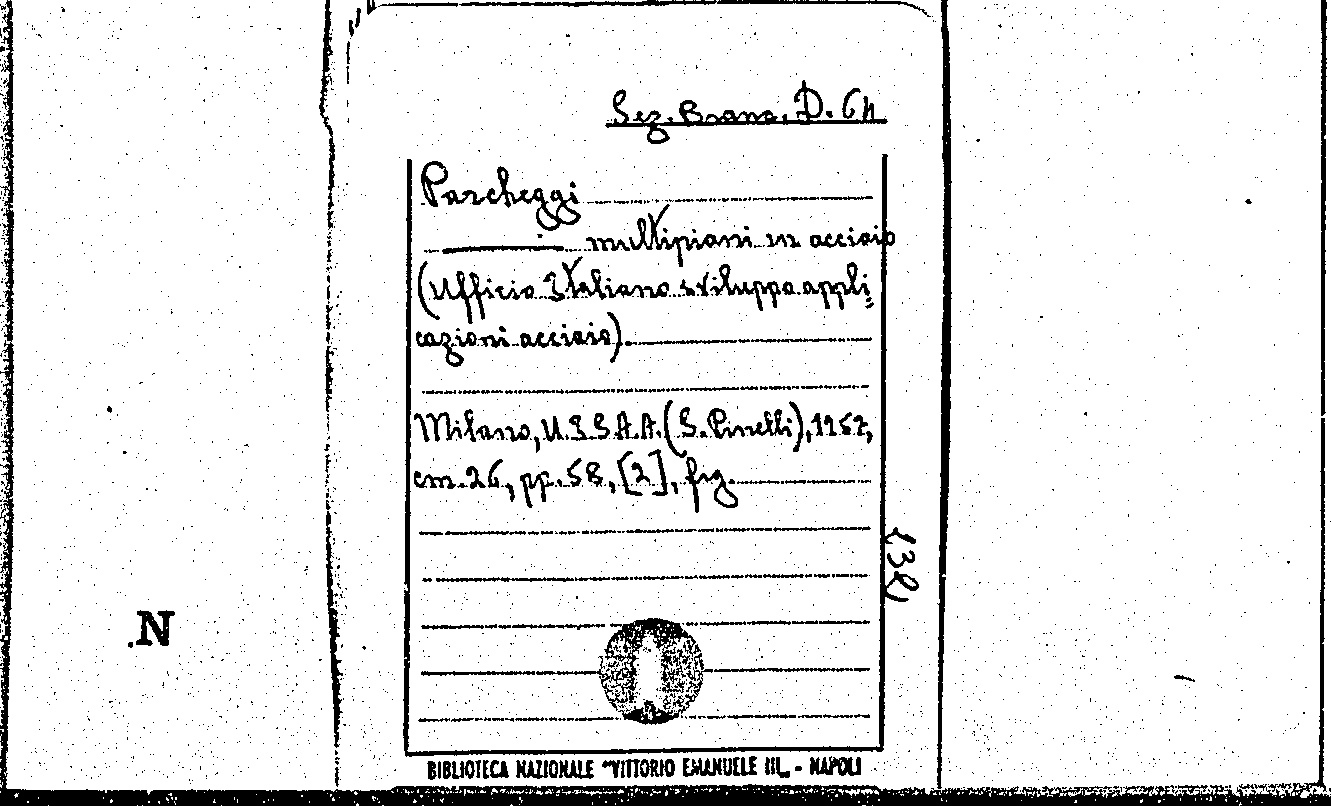 Sez. Brana. D. 64
Parcheggi
multipiani in acciaio
(Ufficio Italiano sviluppo appli=
cazioni acciaio).
Milano, U.I.S.A.A. (S. Pinelli), 1967,
cm. 26, pp. 58, [2], fig.
(32)
N
BIBLIOTECA NAZIONALE "VITTORIO EMANUELE III„ - NAPOLI